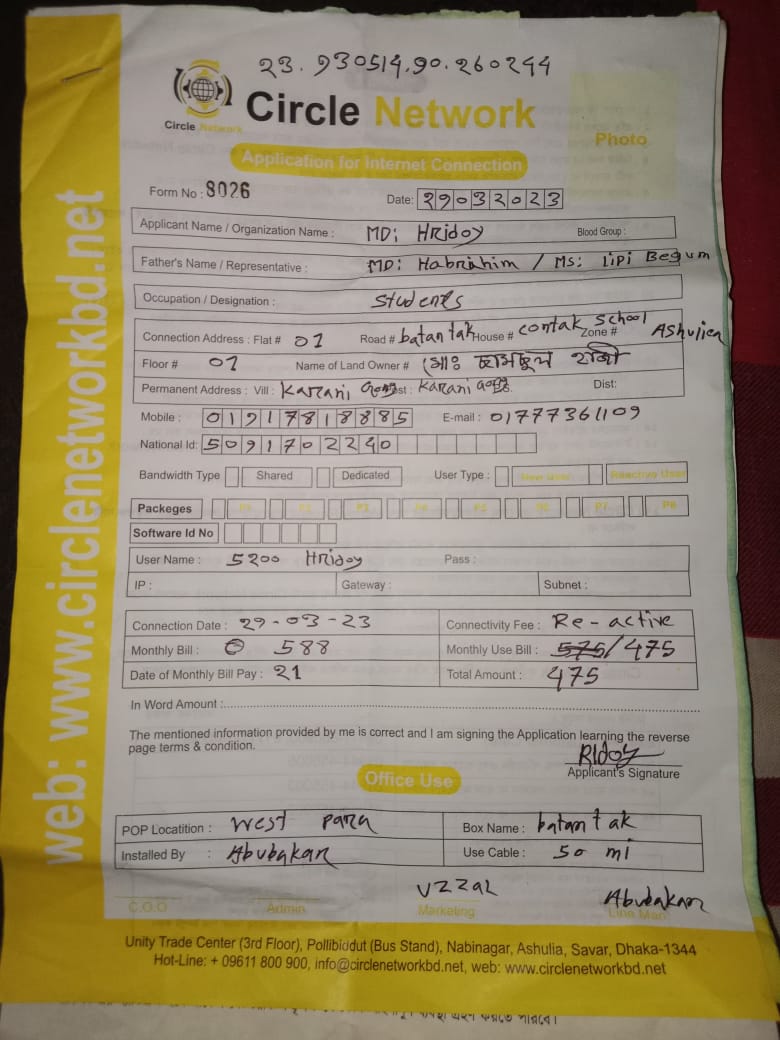 23.930514.90.260244
Circle Network
Circle Network
Photo
Application for Internet Connection
Form No : 8026
Date: 29032023
Applicant Name / Organization Name : MD: HRidoy Blood Group :
Father's Name / Representative : MD: Habrahim / Ms: LiPi Begum
Occupation / Designation : Students
Connection Address : Flat # 01 Road # batan tak House # contak School Zone # Ashuliea
Floor # 01 Name of Land Owner # মোঃ
Permanent Address : Vill : Karani Post : Karani Dist:
Mobile : 01917818885 E-mail : 01777361109
National Id: 5091702240
Bandwidth Type Shared Dedicated User Type : New User Reactive User
Packeges P1 P2 P3 P4 P5 P6 P7 P8
Software Id No
User Name : 5200 HRidoy Pass :
IP : Gateway : Subnet :
Connection Date : 29-03-23 Connectivity Fee : Re-active
Monthly Bill : 588 Monthly Use Bill : 575/475
Date of Monthly Bill Pay : 21 Total Amount : 475
In Word Amount :
The mentioned information provided by me is correct and I am signing the Application learning the reverse
page terms & condition.
RIdoy
Applicant's Signature
Office Use
POP Locatition : West para Box Name : batan tak
Installed By : Abubakar Use Cable : 50 mi
UZZAL Abubakar
C.O.O Admin Marketing Line Man
Unity Trade Center (3rd Floor), Pollibiddut (Bus Stand), Nabinagar, Ashulia, Savar, Dhaka-1344
Hot-Line: + 09611 800 900, info@circlenetworkbd.net, web: www.circlenetworkbd.net
web: www.circlenetworkbd.net